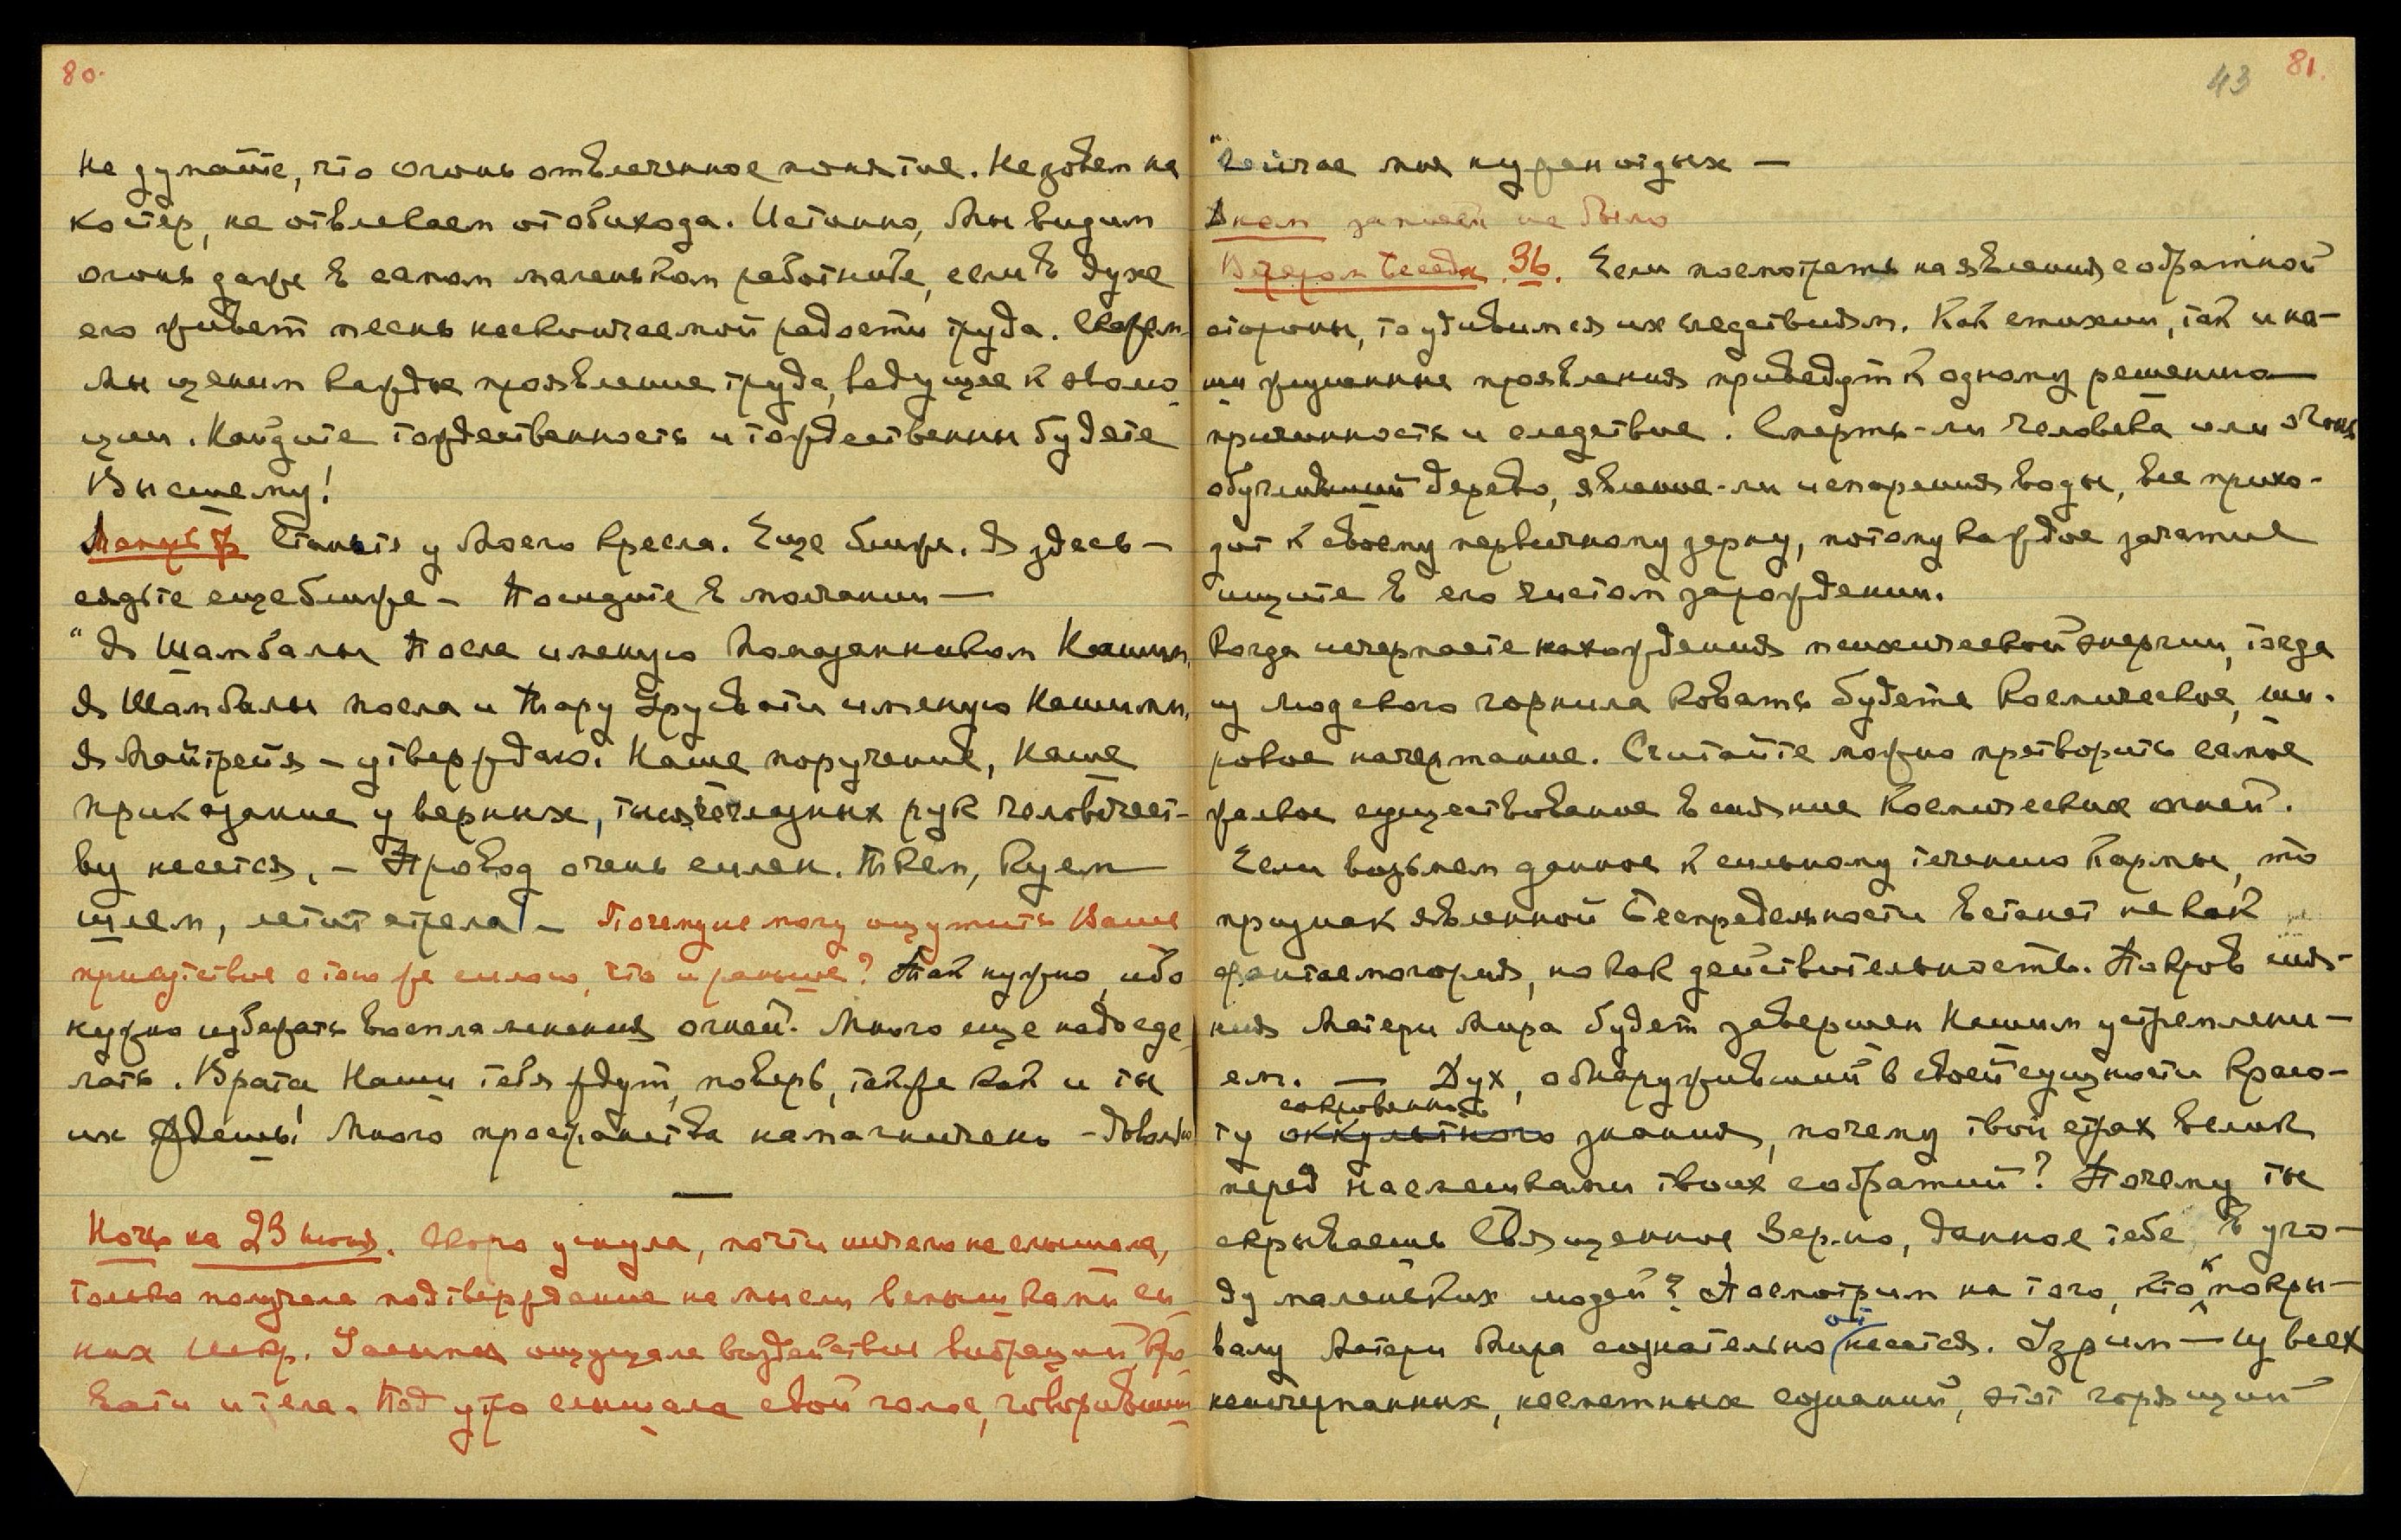 80.
Не думайте, что огонь отвлеченное понятие. Не зовем на
костер, не отвлекаем от обихода. Истинно, Мы видим
огонь даже в самом маленьком работнике, если в духе
его живет песнь нескончаемой радости труда. Скажем –
Мы ценим каждое проявление труда, ведущее к эволю-
ции. Найдите торжественность и торжественны будете
Высшему!
Станьте у Моего кресла. Еще ближе. Я здесь —
сядьте еще ближе — Посидите в молчании —
" Я Шамбалы Посла именую Помазанником Нашим,
Я Шамбалы посла и Тару Урусвати именую Нашими,
Я Майтрейя — утверждаю. Наше поручение, Наше
приказание у верных, тысячеглазных рук человечест-
ву несется, — Провод очень силен. Ткем, куем
шлем, летит стрела! — Почему не могу ощутить Ваше
присутствие с тою же силою, что и раньше? Так нужно, ибо
нужно избежать воспламенения огней. Много еще надо сде-
лать. Врата Наши тебя ждут, поверь, также как и ты
их ждешь! Много пространства намагничено — Довольно
—
Ночь на 23 июня. Скоро уснула, почти ничего не слышала,
только получала подтверждение на мысли вспышками си-
них искр. Усилились ощущала воздействие вибраций кро-
вати и тела. Под утро слышала свой голос, говоривший
43 81.
"Сейчас мне нужен отдых —
Днем записи не было
Вечером Беседа 36. Если посмотреть на явления с обратной
стороны, то удивимся их следствиям. Как стихии, так и на-
ши жизненные проявления приведут к одному решению —
причинность и следствие. Смерть-ли человека или огонь
обугливший дерево, явление-ли испарения воды, все прихо-
дит к своему первичному зерну, потому каждое зачатие
ищите в его чистом зарождении.
Когда исчерпаете нахождения психической энергии, тогда
из людского горнила ковать будете космическое, ми-
ровое начертание. Считайте можно претворить самое
жалкое существование в сияние Космических огней.
Если возьмем данное к сильному течению Кармы, то
признак явленной Беспредельности встанет не как
фантасмагория, но как действительность. Покров сия-
ния Матери Мира будет завершен Нашим устремлени-
ем. — Дух, обнаруживший в своей сущности красо-
сокровенного
ту оккультного знания, почему твой страх велик
перед насмешками твоих собратий? Почему ты
скрываешь Священное Зерно, данное тебе, в уго-
ду маленьких людей? Посмотрим на того, кто к покры-
валу Матери Мира сознательно несется. Узрим — из всех
неисчерпанных, несметных сознаний, этот горящий